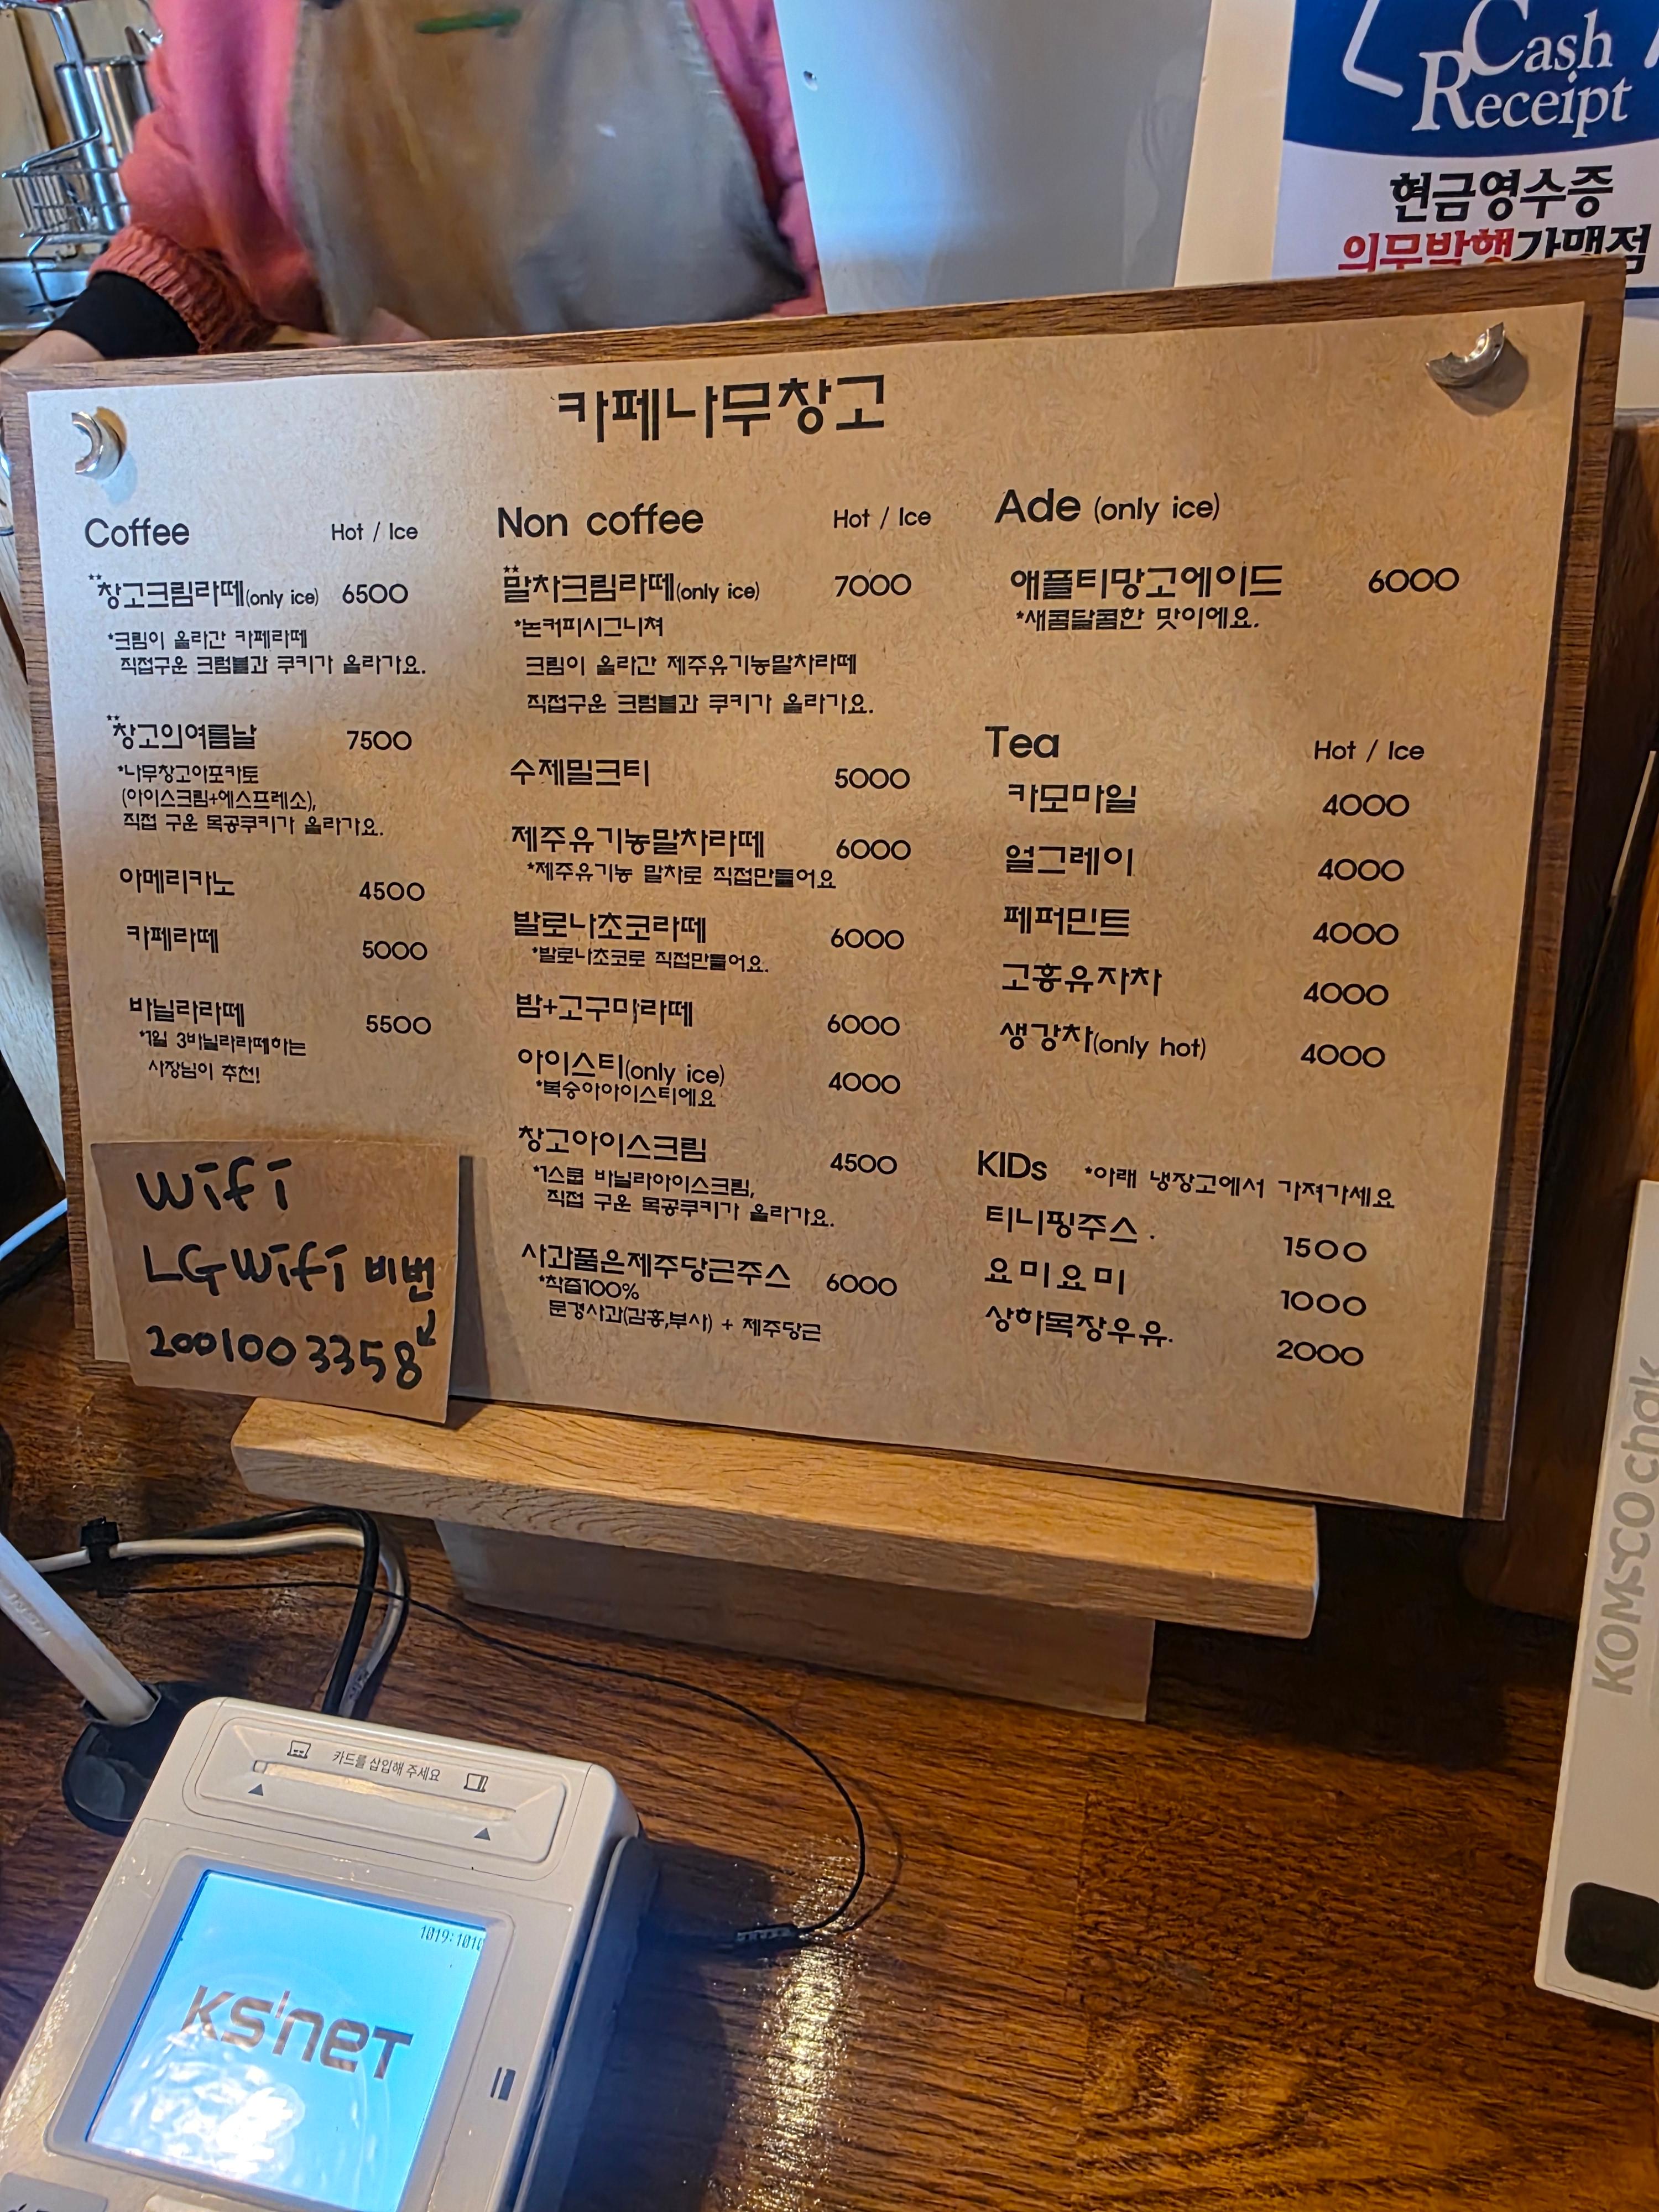 Cash
Receipt
현금영수증
의무발행가맹점
카페나무창고
Coffee Hot / Ice
**창고크림라떼(only ice) 6500
*크림이 올라간 카페라떼
직접구운 크럼블과 쿠키가 올라가요.
**창고의여름날 7500
*나무창고아포카토
(아이스크림+에스프레소),
직접 구운 목공쿠키가 올라가요.
아메리카노 4500
카페라떼 5000
바닐라라떼 5500
*1일 3바닐라라떼하는
사장님이 추천!
Non coffee Hot / Ice
**말차크림라떼(only ice) 7000
*논커피시그니쳐
크림이 올라간 제주유기농말차라떼
직접구운 크럼블과 쿠키가 올라가요.
수제밀크티 5000
제주유기농말차라떼 6000
*제주유기농 말차로 직접만들어요
발로나초코라떼 6000
*발로나초코로 직접만들어요.
밤+고구마라떼 6000
아이스티(only ice) 4000
*복숭아아이스티에요
창고아이스크림 4500
*1스쿱 바닐라아이스크림,
직접 구운 목공쿠키가 올라가요.
사과품은제주당근주스 6000
*착즙100%
문경사과(감홍,부사) + 제주당근
Ade (only ice)
애플티망고에이드 6000
*새콤달콤한 맛이에요.
Tea Hot / Ice
카모마일 4000
얼그레이 4000
페퍼민트 4000
고흥유자차 4000
생강차(only hot) 4000
KIDs *아래 냉장고에서 가져가세요
티니핑주스 . 1500
요미요미 1000
상하목장우유. 2000
wifi
LGWifi 비번
2001003358
KOMSCO chak
카드를 삽입해 주세요
KS'NET